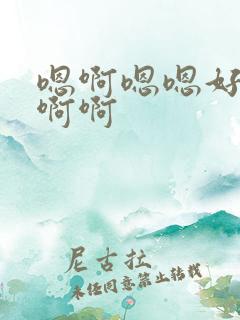 嗯啊嗯嗯好
啊啊
尼古拉
未经同意禁止转载